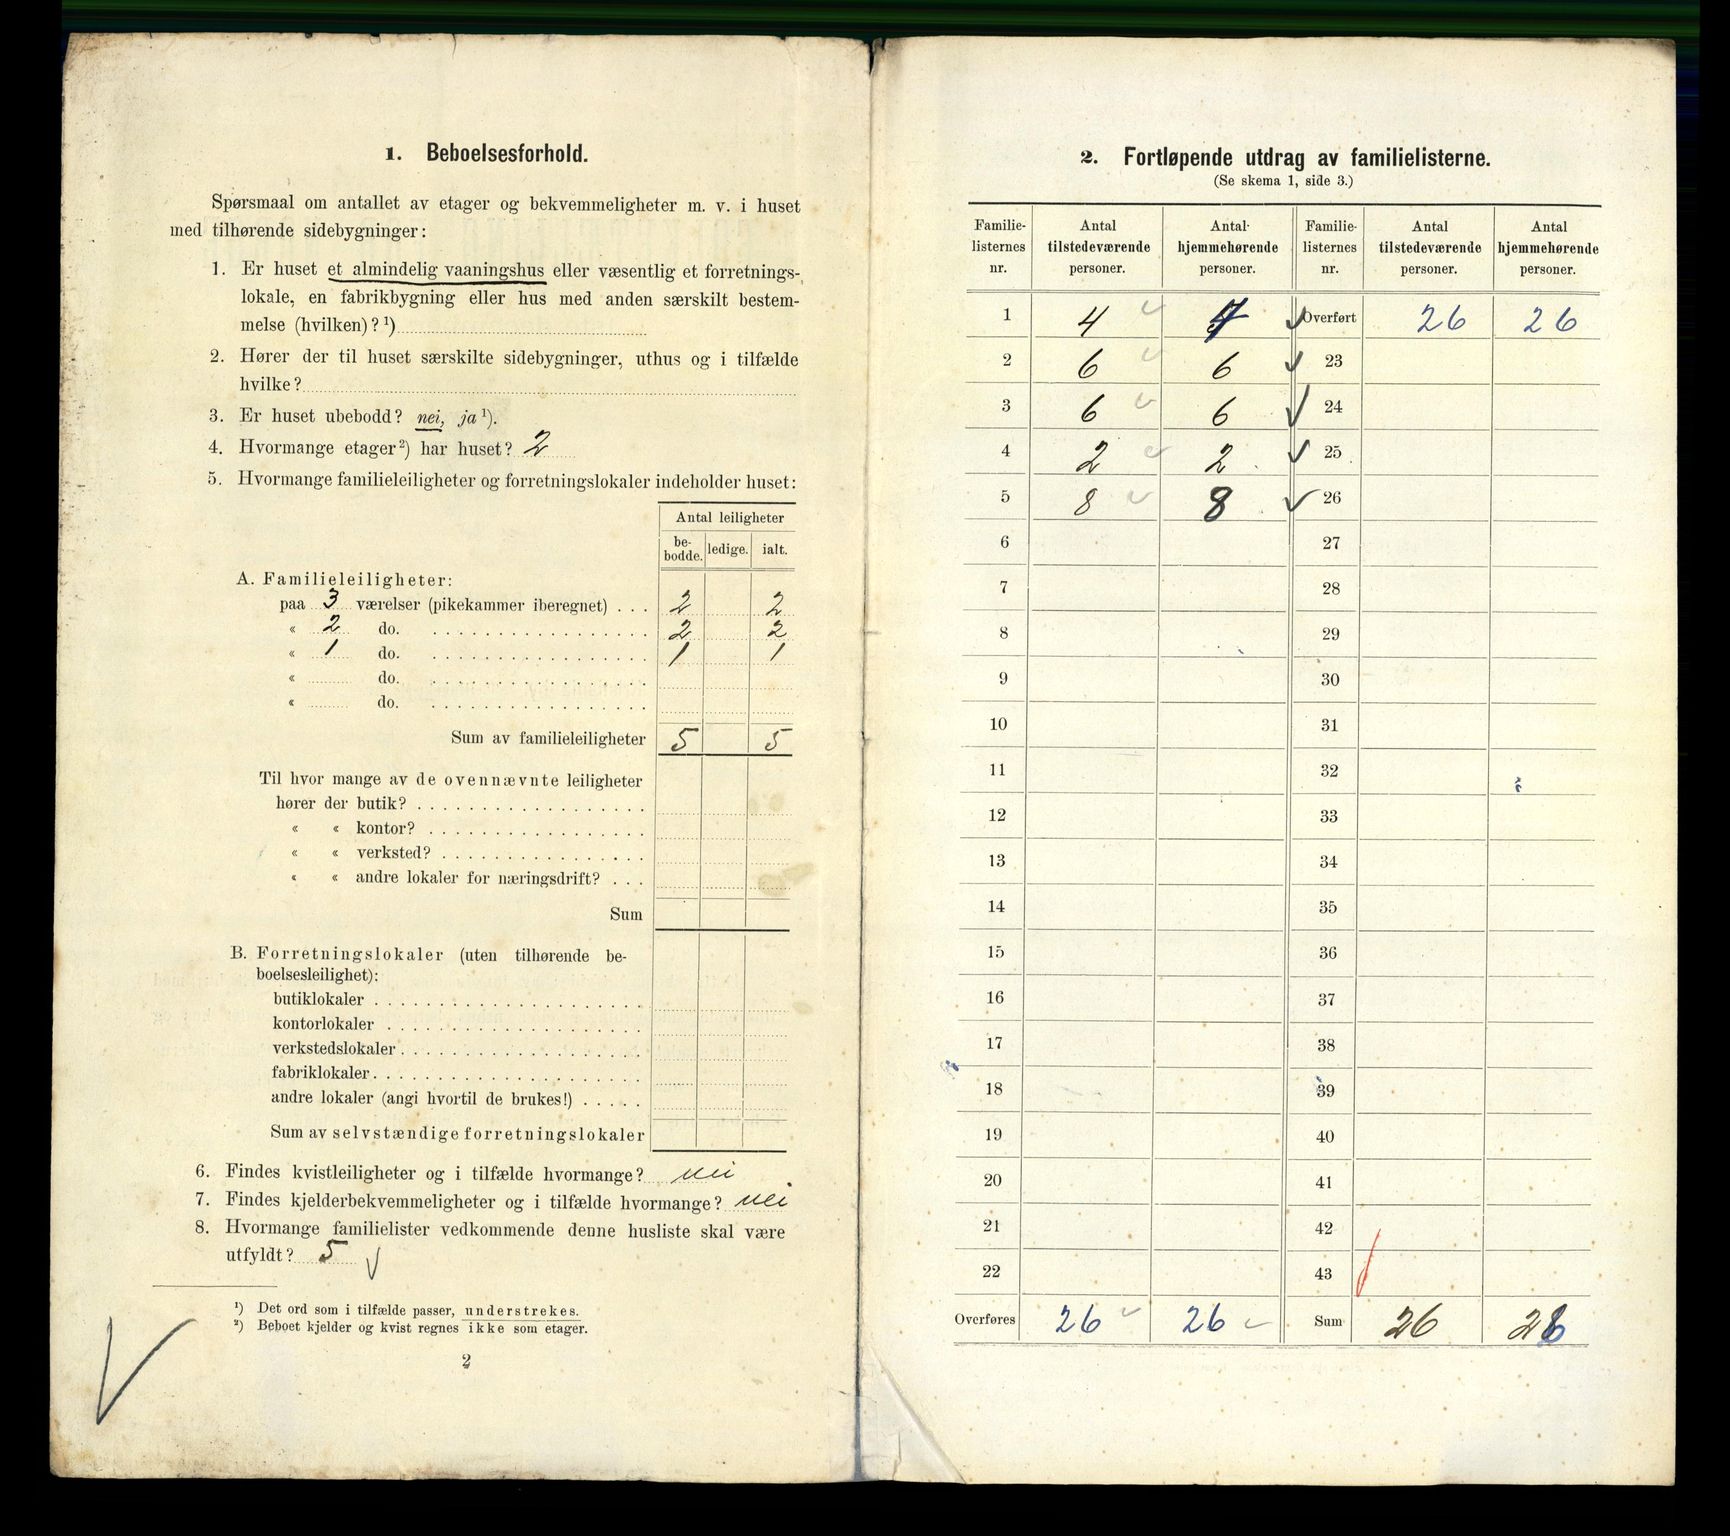 1. Beboelsesforhold.
Spørsmaal om antallet av etager og bekvemmeligheter m. v. i huset
med tilhørende sidebygninger:
1. Er huset et almindelig vaaningshus eller væsentlig et forretnings-
lokale, en fabrikbygning eller hus med anden særskilt bestem-
melse (hvilken)?¹)
2. Hører der til huset særskilte sidebygninger, uthus og i tilfælde
hvilke?
3. Er huset ubebodd? nei, ja¹).
4. Hvormange etager²) har huset? 2
5. Hvormange familieleiligheter og forretningslokaler indeholder huset:
Antal leiligheter
be-
bodde. ledige. ialt.
A. Familieleiligheter:
paa 3 værelser (pikekammer iberegnet) . . . 2 2
« 2 do. . . . . . . . . . . . . . . . . . 2 2
« 1 do. . . . . . . . . . . . . . . . . . 1 1
« do. . . . . . . . . . . . . . . . . .
« do. . . . . . . . . . . . . . . . . .
Sum av familieleiligheter 5 5
Til hvor mange av de ovennævnte leiligheter
hører der butik? . . . . . . . . . . . . . . . . . .
« « kontor? . . . . . . . . . . . . . . . . .
« « verksted? . . . . . . . . . . . . . . . .
« « andre lokaler for næringsdrift? . . .
Sum
B. Forretningslokaler (uten tilhørende be-
boelsesleilighet):
butiklokaler . . . . . . . . . . . . . . . . . . . . .
kontorlokaler . . . . . . . . . . . . . . . . . . . .
verkstedslokaler . . . . . . . . . . . . . . . . . . .
fabriklokaler . . . . . . . . . . . . . . . . . . . . .
andre lokaler (angi hvortil de brukes!) . . . . .
Sum av selvstændige forretningslokaler
6. Findes kvistleiligheter og i tilfælde hvormange? nei
7. Findes kjelderbekvemmeligheter og i tilfælde hvormange? nei
8. Hvormange familielister vedkommende denne husliste skal være
utfyldt? 5
¹) Det ord som i tilfælde passer, understrekes.
²) Beboet kjelder og kvist regnes ikke som etager.
2
2. Fortløpende utdrag av familielisterne.
(Se skema 1, side 3.)
Familie- Antal Antal Familie- Antal Antal
listernes tilstedeværende hjemmehørende listernes tilstedeværende hjemmehørende
nr. personer. personer. nr. personer. personer.
1 4 4 Overført 26 26
2 6 6 23
3 6 6 24
4 2 2 25
5 8 8 26
6 27
7 28
8 29
9 30
10 31
11 32
12 33
13 34
14 35
15 36
16 37
17 38
18 39
19 40
20 41
21 42
22 43
Overføres 26 26 Sum 26 26